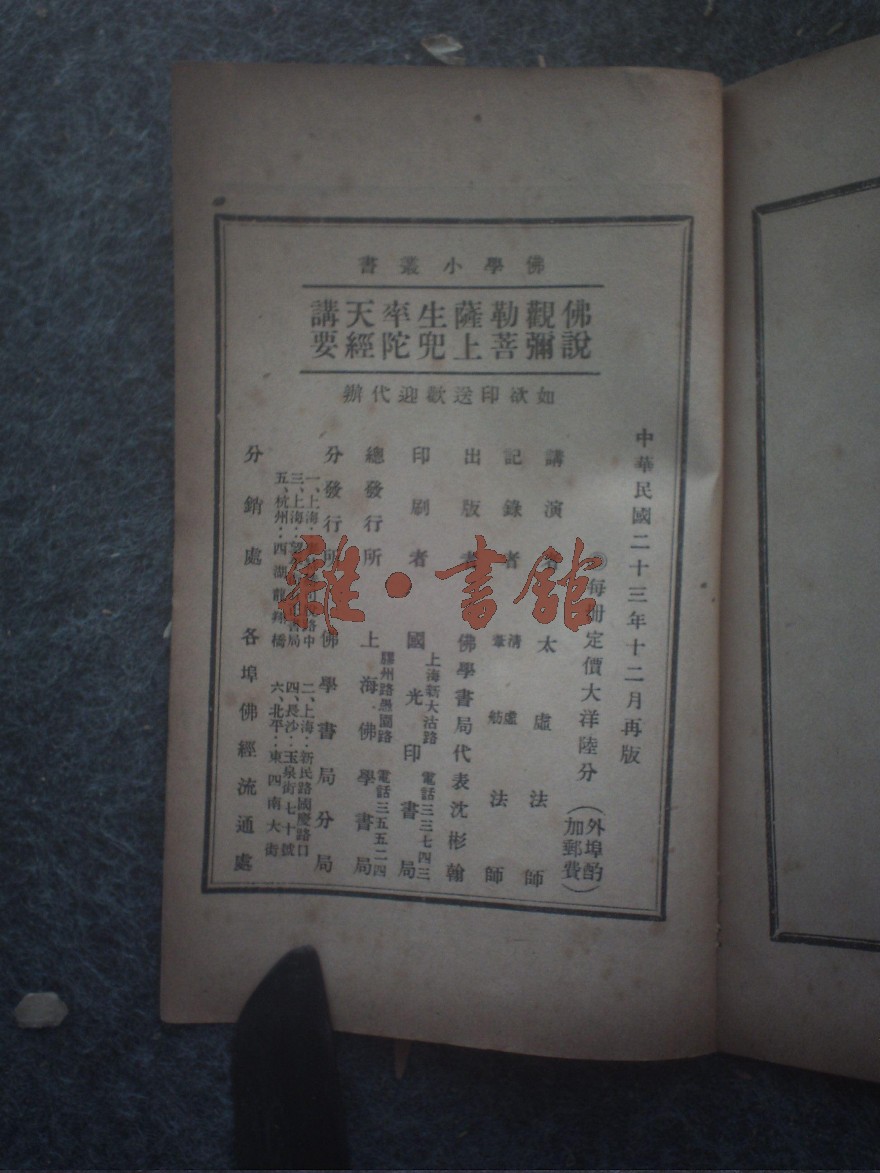 佛學小叢書
佛說觀彌勒菩薩上生兜率陀天經講要
如欲印送歡迎代辦
中華民國二十三年十二月再版
每冊定價大洋陸分(外埠酌加郵費)
講演者 太虛法師
記錄者 清虛 葦舫 法師
出版者 佛學書局代表沈彬翰
印刷者 國光印書局
上海新大沽路 電話三三七四三
總發行所 上海佛學書局
膠州路愚園路 電話三五五二四
分發行所 佛學書局分局
一、上海 路中
二、上海:新民路國慶路口
三、上海: 書局
四、長沙:玉泉街七十號
五、杭州:西湖龍翔橋
六、北平:東四南大街
分銷處 各埠佛經流通處
雜·書館